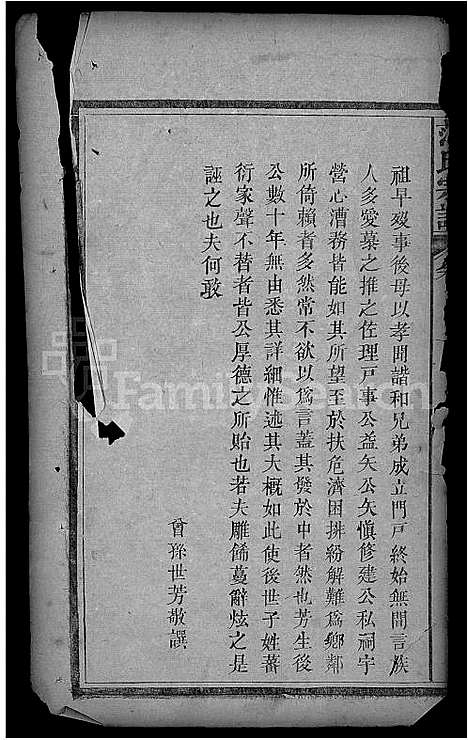 祖早歿事後母以孝聞諧和兄弟成立門戶終始無間言族
人多愛慕之推之佐理戸事公益矢公矢愼修建公私祠宇
營心漕務皆能如其所望至於扶危濟困排紛解難爲鄉鄰
所倚賴者多然常不欲以爲言蓋其發於中者然也芳生後
公數十年無由悉其詳細惟述其大概如此使後世子姓蕃
衍家聲不替者皆公厚德之所貽也若夫雕餙蔓辭炫之是
誣之也夫何敢
曾孫世芳敬譔
氏宗譜
FamilySearch